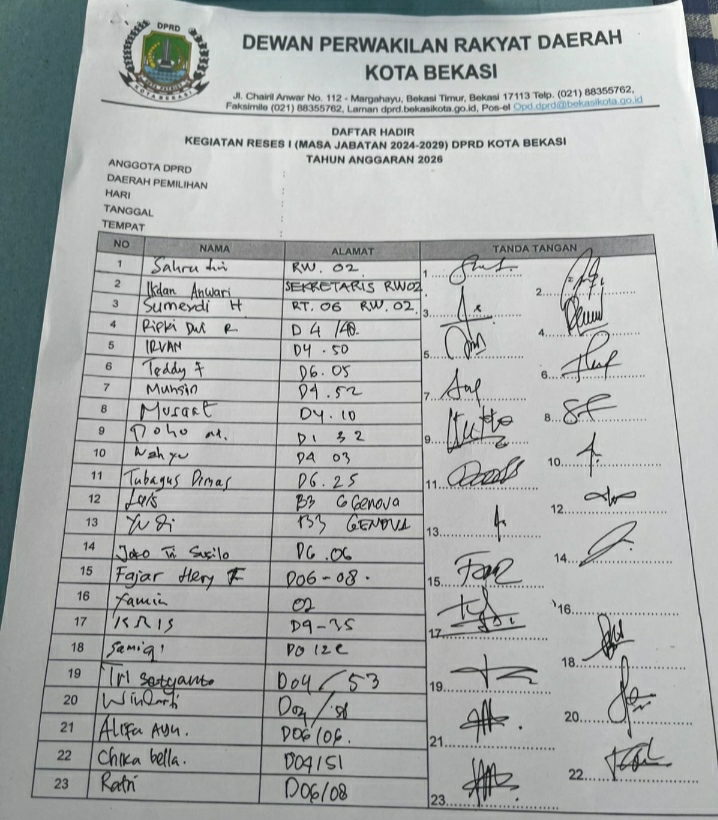 DPRD
KOTA BEKASI
DEWAN PERWAKILAN RAKYAT DAERAH
KOTA BEKASI
Jl. Chairil Anwar No. 112 - Margahayu, Bekasi Timur, Bekasi 17113 Telp. (021) 88355762,
Faksimile (021) 88355762, Laman dprd.bekasikota.go.id, Pos-el Opd.dprd@bekasikota.go.id
DAFTAR HADIR
KEGIATAN RESES I (MASA JABATAN 2024-2029) DPRD KOTA BEKASI
TAHUN ANGGARAN 2026
ANGGOTA DPRD :
DAERAH PEMILIHAN :
HARI :
TANGGAL :
TEMPAT :
NO NAMA ALAMAT TANDA TANGAN
1 Sahrudin RW. 02 1
2 Ikdan Anwari SEKRETARIS RW02 2
3 Sumerdi H RT. 06 RW. 02 3
4 Ripki Dwi R D4/48 4
5 IRVAN D4.50 5
6 Teddy F D6.05 6
7 Muhsin D4.52 7
8 D4.10 8
9 D1 32 9
10 Wahyu D4 03 10
11 Tubagus Dimas D6.25 11
12 B3 G Genova 12
13 Yudi B3 GENOVA 13
14 Joko Tri Susilo D6.06 14
15 Fajar Hery F D06-08. 15
16 Yamin 02 16
17 KRIS D9-35 17
18 Samiqi 18
19 Tri Setyanto D04/53 19
20 Windarti 20
21 Alifa Ayu. D06/06. 21
22 Chika bella. D04/51 22
23 Ratri D06/08 23